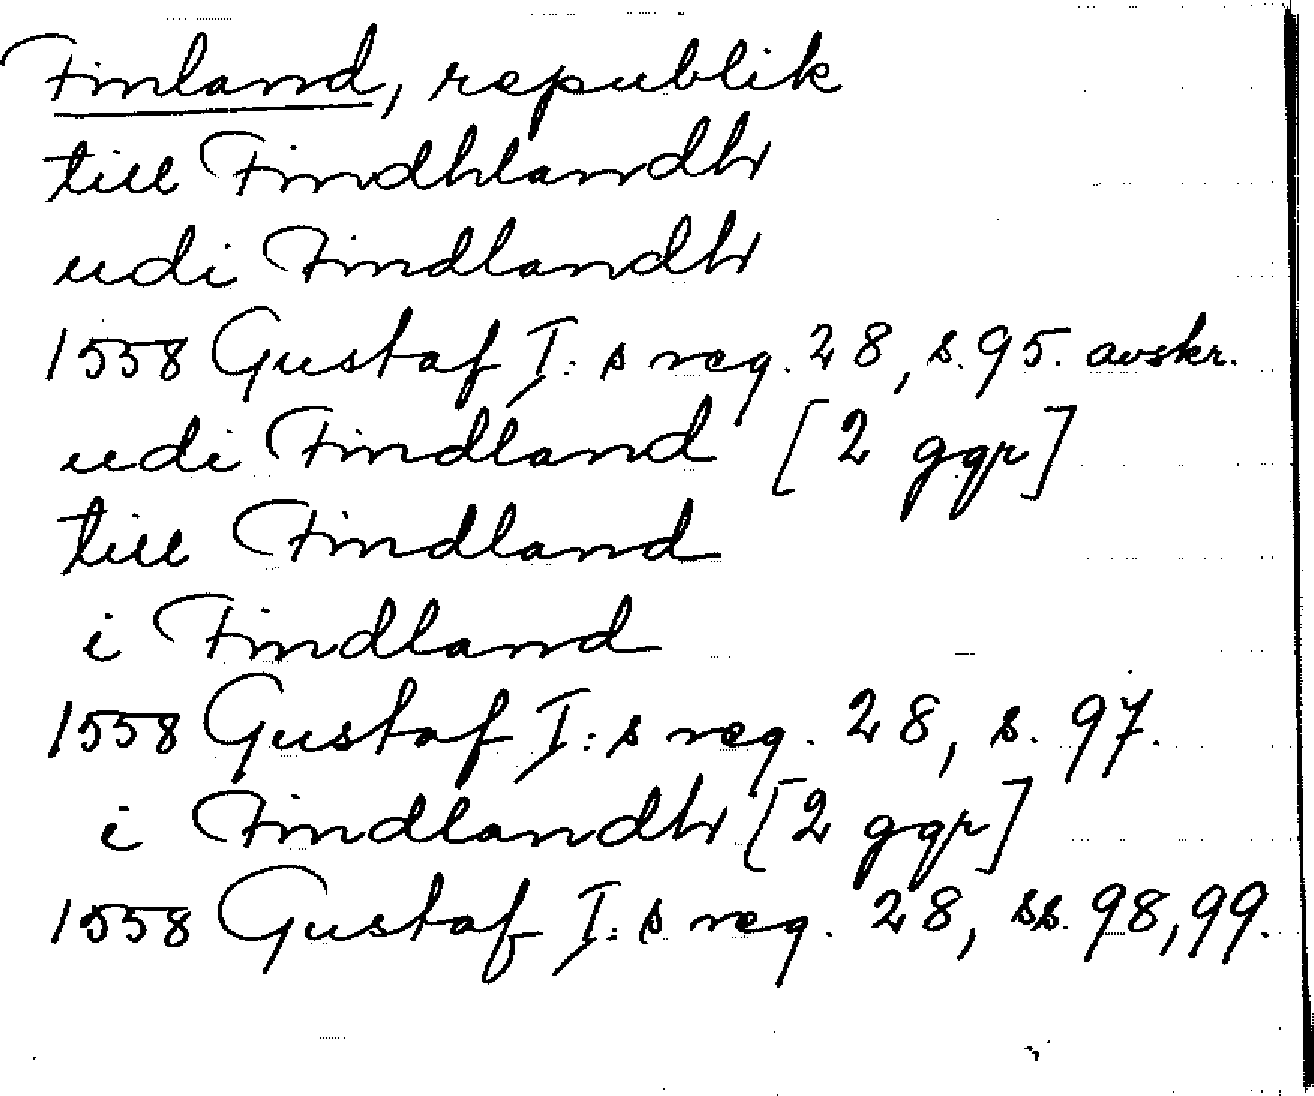 Finland, republik
till Findhlandh
udi Findlandh
1558 Gustaf I:s reg. 28, s. 95. avskr.
udi Findland [2 ggr]
till Findland
i Findland
1558 Gustaf I:s reg. 28, s. 97.
i Findlandh [2 ggr]
1558 Gustaf I:s reg. 28, ss. 98,99.